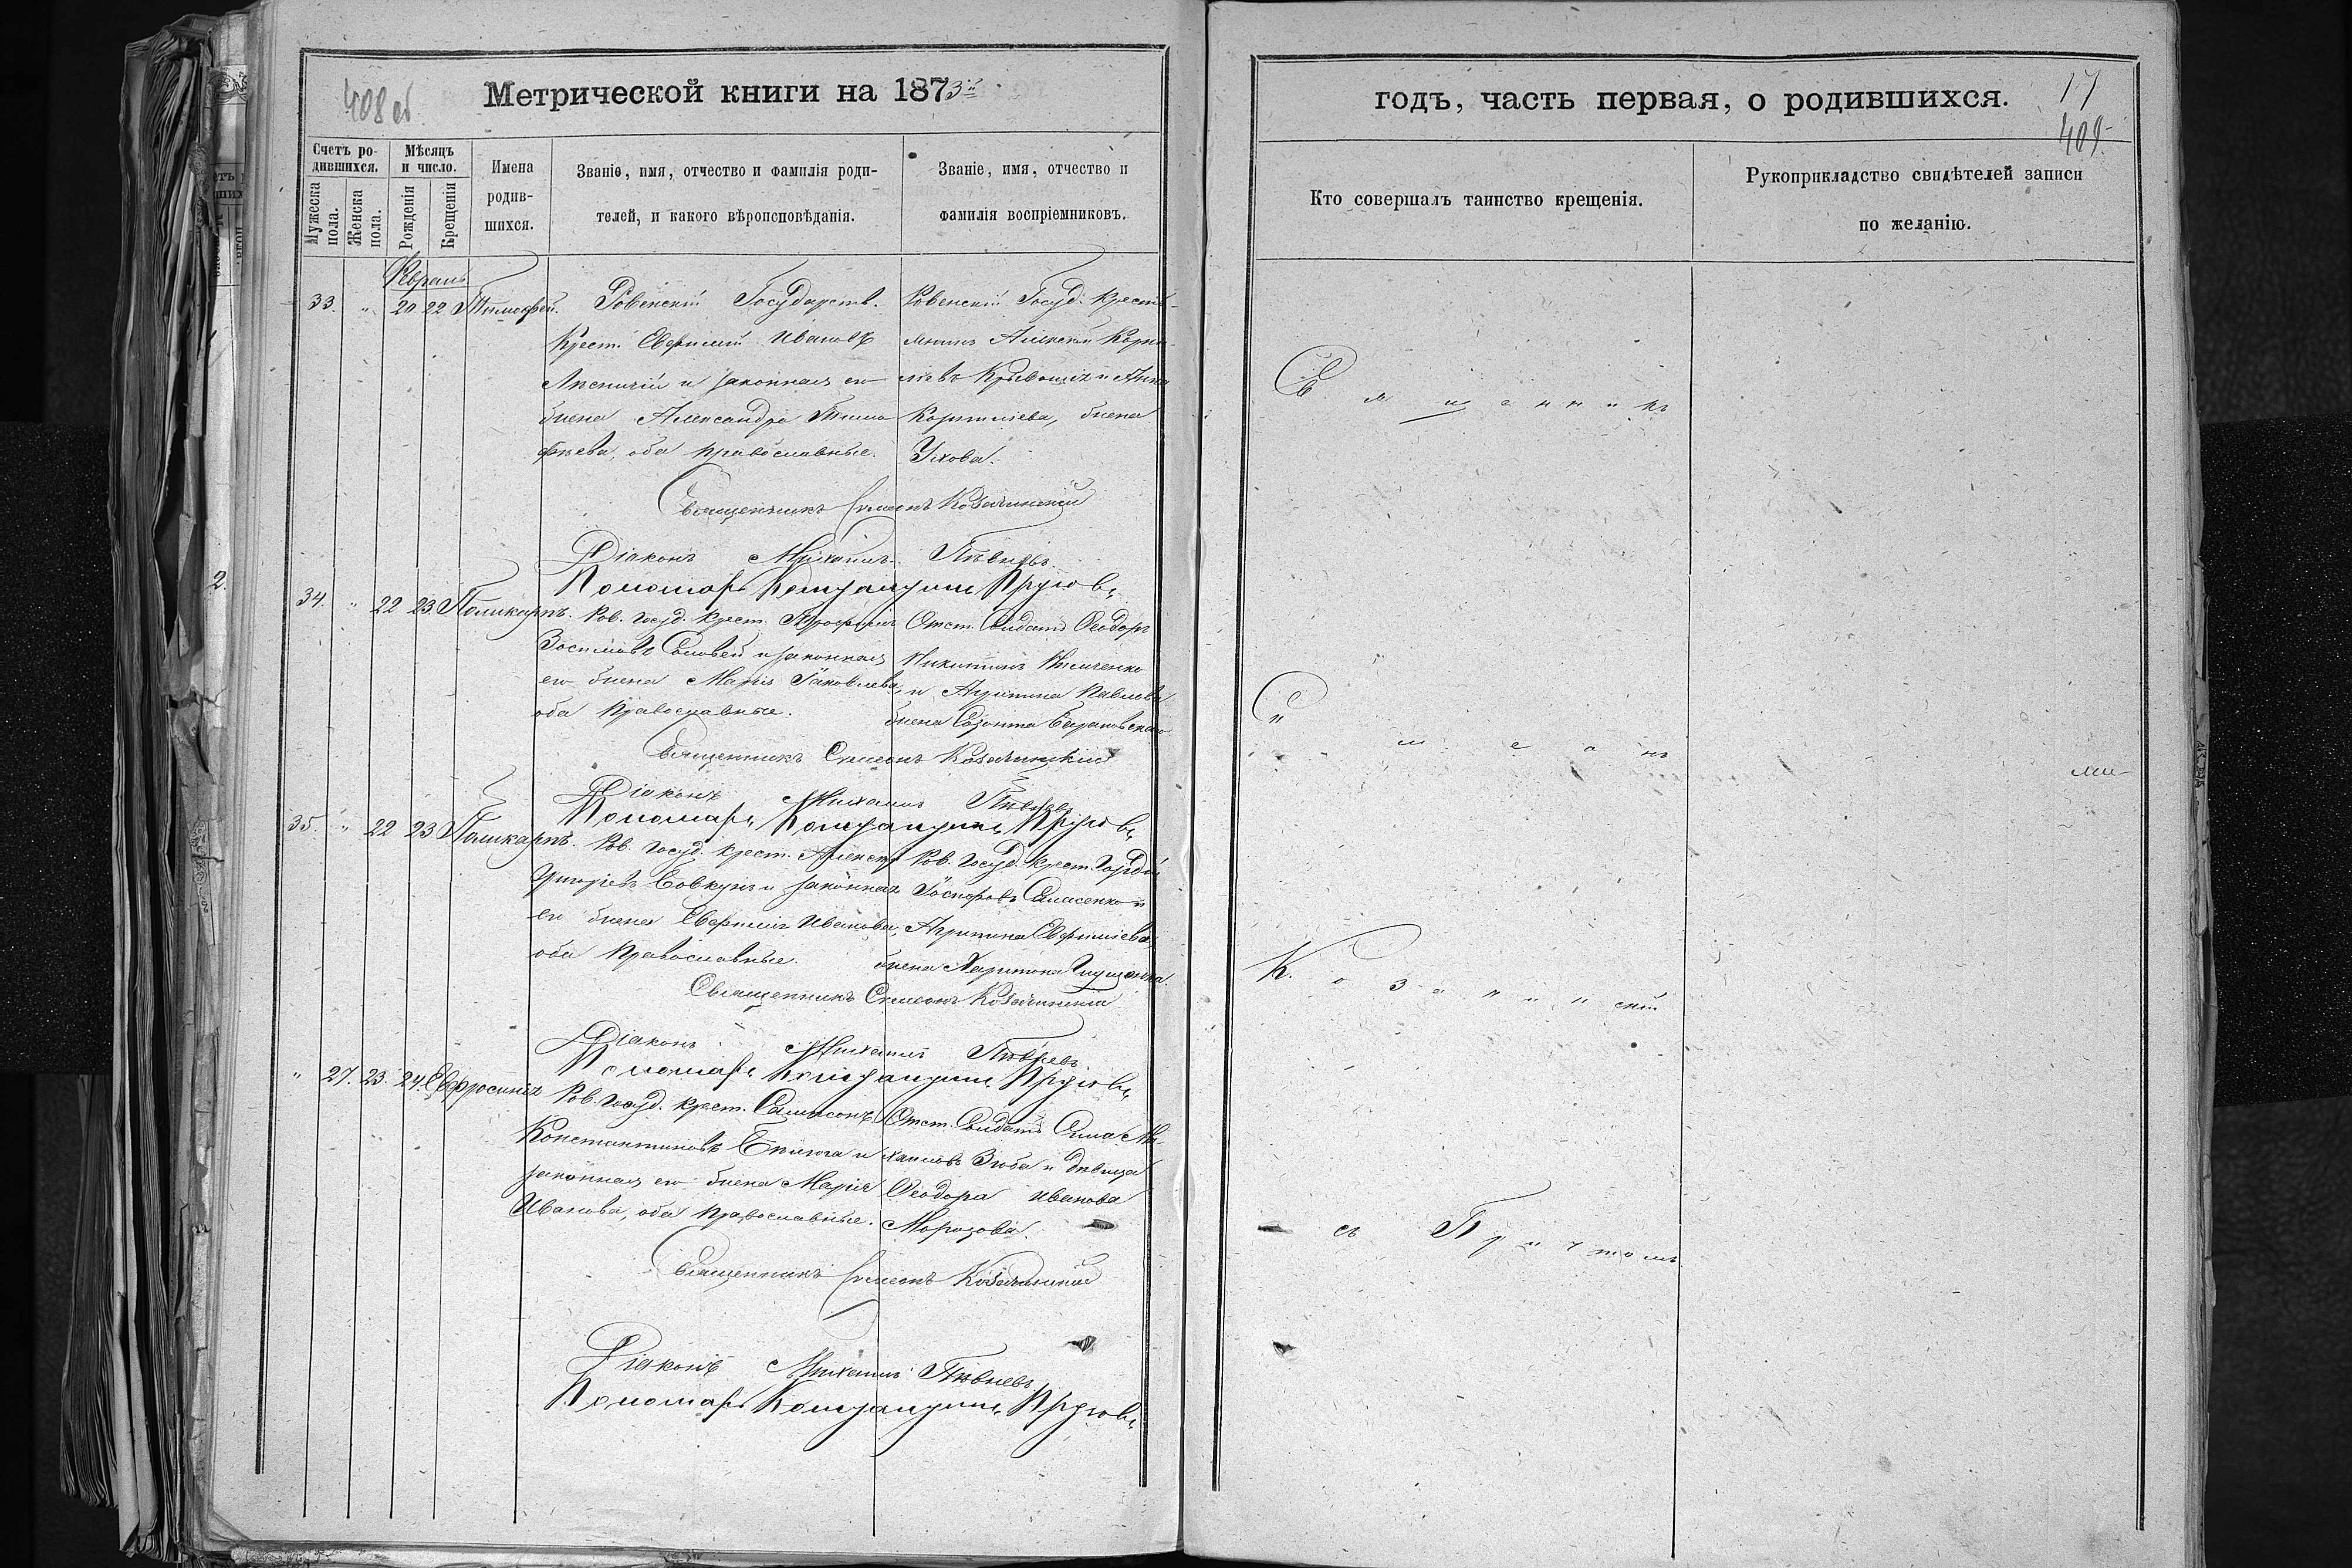 408 об
Метрической книги на 1873й
Счетъ ро-
дившихся.
Мужеска пола.
Женска пола.
Мѣсяцъ
и число.
Рожденія
Крещенія
Имена
родив-
шихся.
Званіе, имя, отчество и фамилія роди-
телей, и какого вѣроисповѣданія.
Званіе, имя, отчество и
фамилія воспріемниковъ.
33. " 20 22 Тимофей.
Ровенскій Государств.
Крест. Евфимій Ивановъ
и законная его
жена Александра Тимо
фѣева, оба православные.
Ровенскій Госуд. Кресть-
янинъ Алексѣй Корни-
ліевъ и Анна
Корниліева, жена
Ухова.
Священникъ Симеонъ Козачинскій
Діаконъ Михаилъ Пѣвневъ
Пономарь Константинъ Круговъ
34. " 22 23 Поликарпъ.
Ров. Госуд. Крест. Трофимъ
Зосимовъ Соловей и законная
его жена Марія Іаковлева,
оба Православные.
Отст. Солдатъ Ѳеодоръ
Никитинъ
и Агрипина Павлова
жена Созонта Барановскаго
Священникъ Симеонъ Козачинскій
Діаконъ Михаилъ Пѣвневъ
Пономарь Константинъ Круговъ
35. " 22 23 Поликарпъ.
Ров. Госуд. Крест. Алексѣй
Григорьевъ Бовкунъ и законная
его жена Евфимія Иванова,
оба Православные.
Ров. Госуд. Крест. Гордѣй
Іосифовъ и
Агрипина Евфиміева,
жена Харитона
Священникъ Симеонъ Козачинскій
Діаконъ Михаилъ Пѣвневъ
Пономарь Константинъ Круговъ
" 27. 23. 24. Евфросинія
Ров. Госуд. Крест. Сампсонъ
Константиновъ и
законная его жена Марія
Иванова, оба Православные.
Отст. Солдатъ Сила Ми-
хаиловъ Зюба и дѣвица
Ѳеодора Иванова
Морозова.
Священникъ Симеонъ Козачинскій
Діаконъ Михаилъ Пѣвневъ
Пономарь Константинъ Круговъ
годъ, часть первая, о родившихся.
17
409
Кто совершалъ таинство крещенія.
Рукоприкладство свидѣтелей записи
по желанію.
Священникъ
Симеонъ
Козачинскій
съ Причтомъ